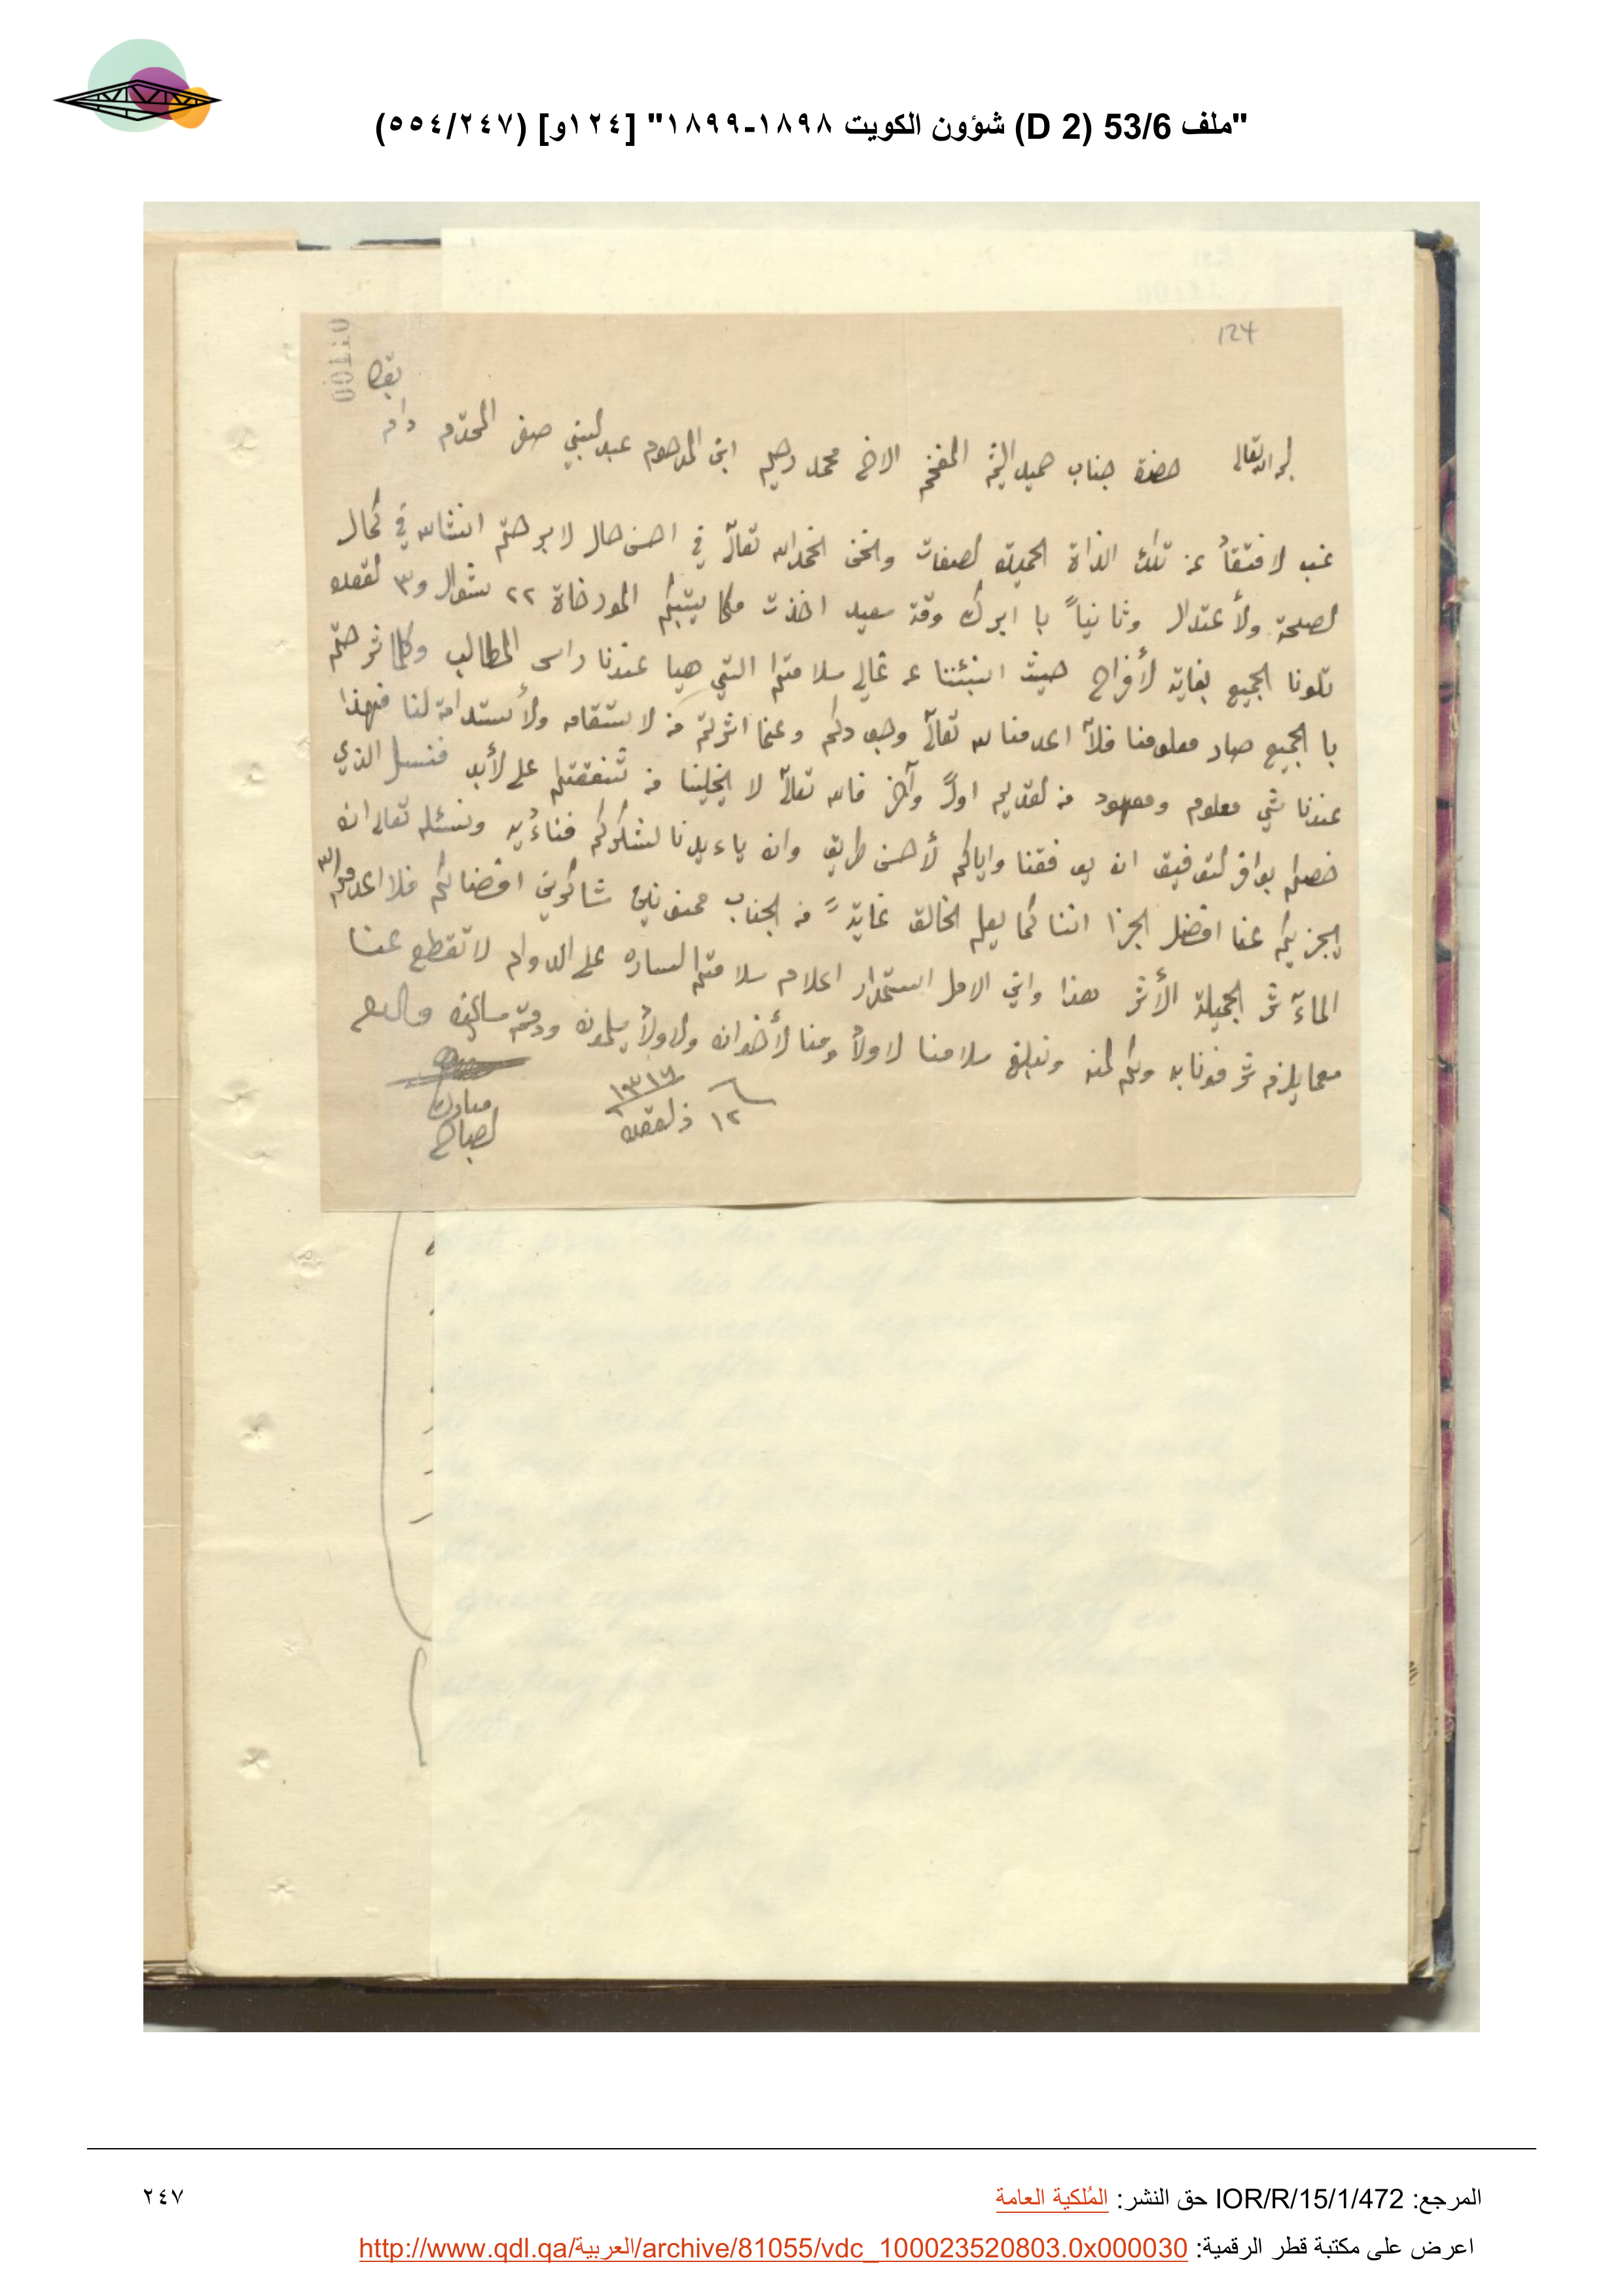 "ملف 53/6 (D 2) شؤون الكويت ١٨٩٨-١٨٩٩" [١٢٤و] (٢٤٧/٥٥٤)
124
00110
بقاه
لله تعالى حضرة جناب حميد الشيم المفخم الاخ محمد رحيم ابن المرحوم عبد لنبي صفر المحترم دام
غب لافتقاً عن تلك الذاة الجميلة لصفات ونحن الحمد الله تعالى في احسن حال لابرحتم انشالله في كمال
لصحة ولأعتدال وثانياً با ابرك وقة سعيد اخذت مكاتيبكم المورخاة ٢٢ شوال و٣ لقعده
تلونا الجميع بغاية لأفراح حيث انبئتنا عن غالي سلامتكم التي هيا عندنا راس المطالب وكلما شرحتم
با الجميع صار معلومنا فلا اعدمنا لله تعالى وجودكم وعنما اشرتم من لاستقامه ولأستدامة لنا فهذا
عندنا شي معلوم ومعهود من لقديم اولاً وآخر فالله تعالى لا يخلينا من شفقتكم على لأبد فنسئل الذي
خصكم بوافر لتوفيق ان يوفقنا واياكم لأحسن طريق وان ياءيدنا لشكركم فناءيه ونسئله تعالى ان
يجزيكم عنا افضل الجزا اننا كما يعلم الخالق غايةً من الجناب ممنونين شاكرين افضالكم فلا اعدمكم الله
الماآثر الجميلة الأثر هذا واني الامل استمرار اعلام سلامتكم الساره على الدوام لا تقطع عنا
معما يلزم شرفونا به ولكم لمنه ونبلغ سلامنا لاولاد ومنا لأخوان ولاولاد يسلمون ودمتم سالمين والسلام
١٢ ذلقعده ١٣١٦
مبارك
لصباح
المرجع: IOR/R/15/1/472 حق النشر: المُلكية العامة
٢٤٧
اعرض على مكتبة قطر الرقمية: http://www.qdl.qa/العربية/archive/81055/vdc_100023520803.0x000030